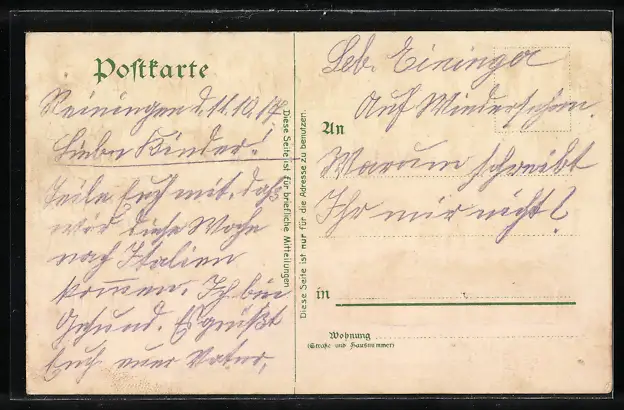 Postkarte
Reiningen d. 11.10.17
Liebe Kinder!
Teile Euch mit, daß
wir diese Woche
nach Italien
kommen. Ich bin
Gesund. Es grüßt
Euch euer Vater.
Diese Seite ist für briefliche Mitteilungen
Diese Seite ist nur für die Adresse zu benutzen.
Leb. Eininger
Auf Wiedersehen.
An
Warum schreibt
Ihr mir nicht?
in
Wohnung
(Straße und Hausnummer)